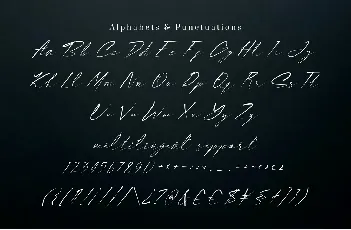 Alphabets & Punctuations
Aa Bb Cc Dd Ee Ff Gg Hh Ii Jj
Kk Ll Mm Nn Oo Pp Qq Rr Ss Tt
Uu Vv Ww Xx Yy Zz
multilingual support
1234567890